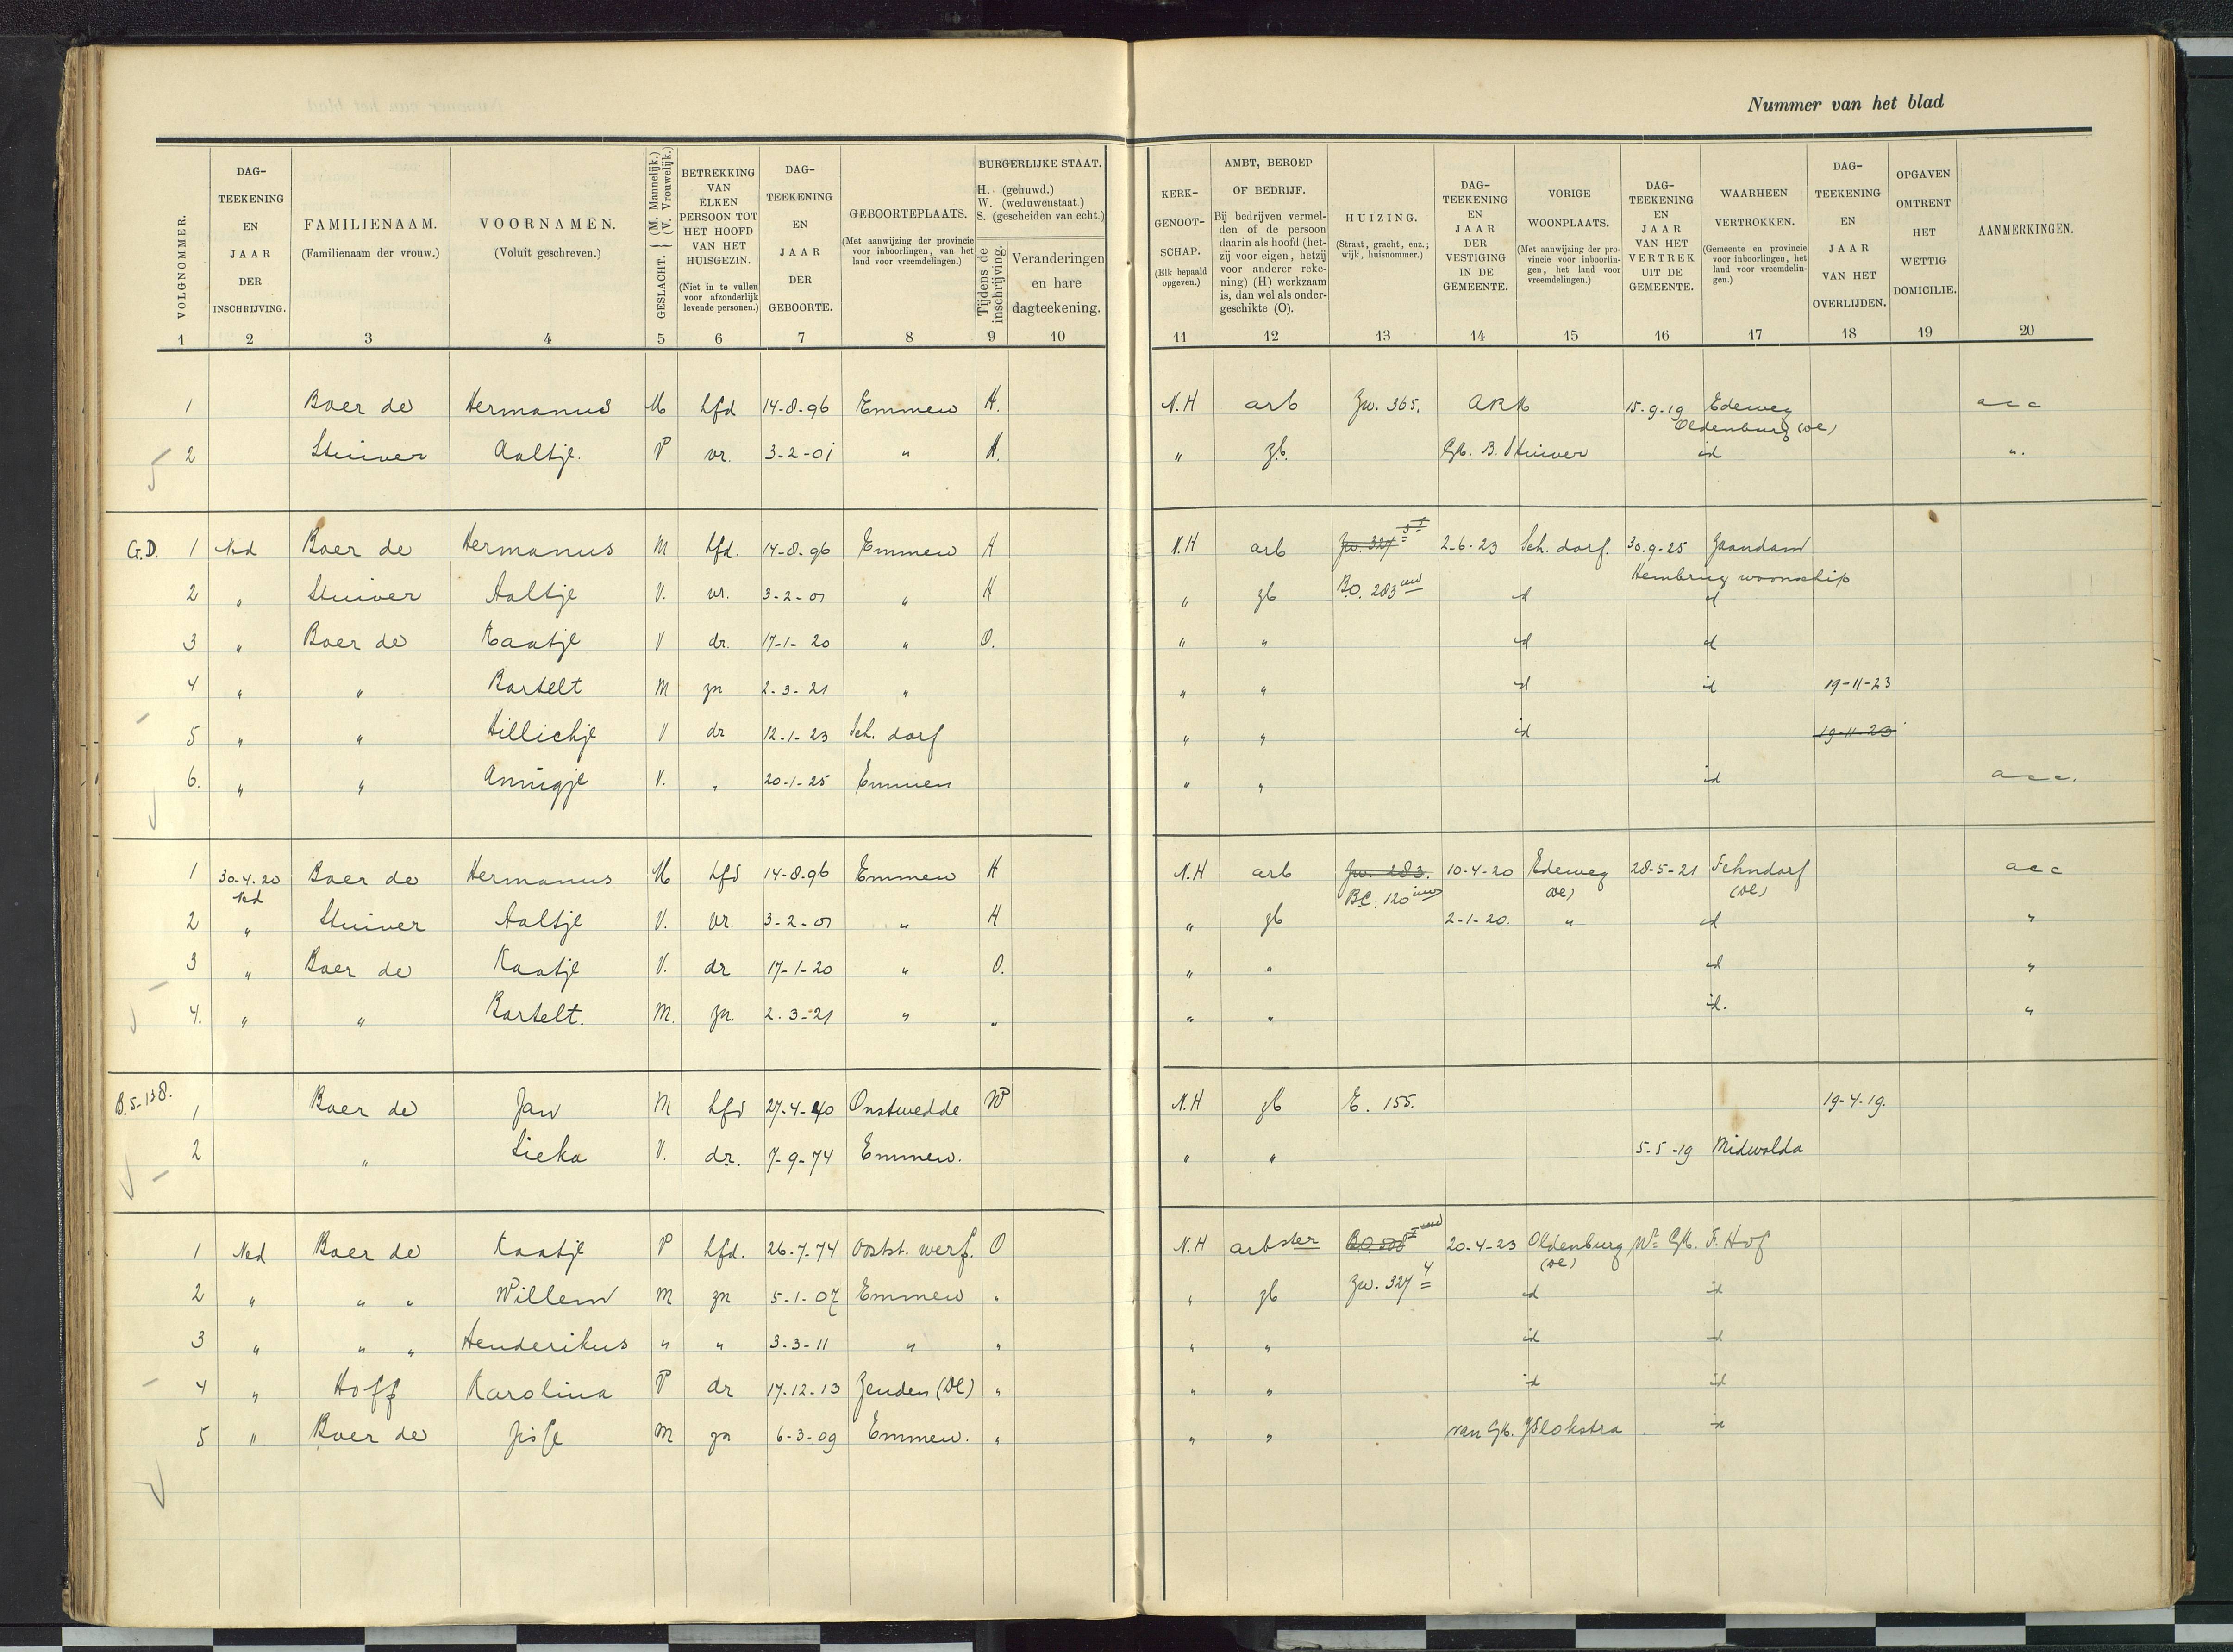 Nummer van het blad
VOLGNOMMER. 1
DAG-TEEKENING EN JAAR DER INSCHRIJVING. 2
FAMILIENAAM. (Familienaam der vrouw.) 3
VOORNAMEN. (Voluit geschreven.) 4
GESLACHT. (M. Mannelijk.) (V. Vrouwelijk.) 5
BETREKKING VAN ELKEN PERSOON TOT HET HOOFD VAN HET HUISGEZIN. (Niet in te vullen voor afzonderlijk levende personen.) 6
DAG-TEEKENING EN JAAR DER GEBOORTE. 7
GEBOORTEPLAATS. (Met aanwijzing der provincie voor inboorlingen, van het land voor vreemdelingen.) 8
BURGERLIJKE STAAT. H. (gehuwd.) W. (weduwenstaat.) S. (gescheiden van echt.)
Tijdens de inschrijving. 9
Veranderingen en hare dagteekening. 10
KERK-GENOOT-SCHAP. (Elk bepaald opgeven.) 11
AMBT, BEROEP OF BEDRIJF. Bij bedrijven vermelden of de persoon daarin als hoofd (hetzij voor eigen, hetzij voor anderer rekening) (H) werkzaam is, dan wel als ondergeschikte (O). 12
HUIZING. (Straat, gracht, enz.; wijk, huisnommer.) 13
DAG-TEEKENING EN JAAR DER VESTIGING IN DE GEMEENTE. 14
VORIGE WOONPLAATS. (Met aanwijzing der provincie voor inboorlingen, het land voor vreemdelingen.) 15
DAG-TEEKENING EN JAAR VAN HET VERTREK UIT DE GEMEENTE. 16
WAARHEEN VERTROKKEN. (Gemeente en provincie voor inboorlingen, het land voor vreemdelingen.) 17
DAG-TEEKENING EN JAAR VAN HET OVERLIJDEN. 18
OPGAVEN OMTRENT HET WETTIG DOMICILIE. 19
AANMERKINGEN. 20
1 Boer de Hermanus M hfd 14-8-96 Emmen H. N.H arb Zw. 365. ARK 15-9-19 Edeweg acc
Oldenburg (Dl)
2 Stuiver Aaltje. V vr. 3-2-01 " H. " zb. Gk. B. Stuiver id ".
G.D. 1 Ned Boer de Hermanus M hfd. 14-8-96 Emmen H N.H arb Zw. 327 2-6-23 Sch. dorf. 30-9-25 Zaandam
Hembrug woonschip
2 " Stuiver Aaltje V. vr. 3-2-01 " H " zb B.O. 283 id id
3 " Boer de Kaatje V dr. 17-1-20 " O. " " id id
4 " " Bartelt M zn 2-3-21 " " " id id 19-11-23
5 " " Hillichje V dr 12-1-23 Sch. dorf " " id 19-11-23
6. " " Annigje V. " 20-1-25 Emmen " " id acc.
1 30-4-20 Boer de Hermanus M hfd 14-8-96 Emmen H N.H arb Zw. 283. 10-4-20 Edeweg 28-5-21 Fehndorf acc
Ned B.C. 120 (Dl) (Dl)
2 " Stuiver Aaltje V. vr. 3-2-01 " H " zb 2-1-20. " id "
3 " Boer de Kaatje V. dr 17-1-20 " O. " " id "
4. " " Bartelt. M. zn. 2-3-21 " " " " id. "
B.5-138. 1 Boer de Jan M hfd 27-4-40 Onstwedde W N.H zb E. 155. 19-4-19.
2 " Sieka V. dr. 7-9-74 Emmen. " " 5-5-19 Midwolda
1 Ned Boer de Kaatje V hfd. 26-7-74 Oostst. werf. O N.H arbster 20-4-23 Oldenburg Nr Gk. F. Hof
(Dl)
2 " " " Willem M zn 5-1-07 Emmen " " zb Zw. 327 4 id id
3 " " " Henderikus " " 3-3-11 " " " " id id
4 " Hoff Karolina V dr 17-12-13 (Dl) " " " id id
5 " Boer de M zn 6-3-09 Emmen. " " " van Gk. id